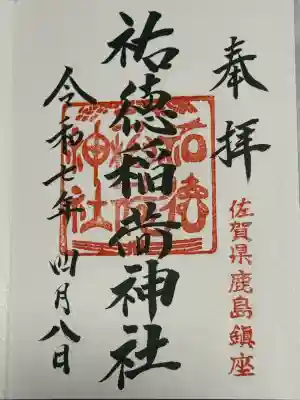 奉拝
佐賀県鹿島鎮座
祐徳稲荷神社
祐徳
稲荷
神社
令和七年 四月八日